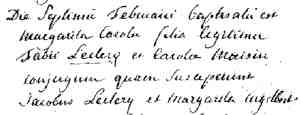 Die Septima Februarii baptisata est
Margarita Carola filia legitima
Fabii Leclerq et Carola Maisin
conjugum quam susceperunt
Jacobus Leclerq et Margarita